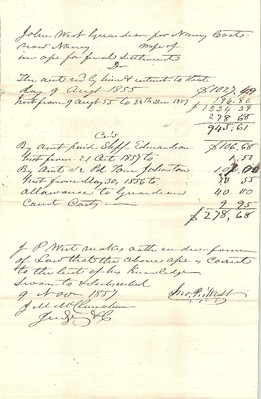 John West Guardian for Nancy Coats
now Nancy wife of
in ape for final Settlement
Dr
The amt in by him & interest to that
day 9 August 1855 $1027.49
Inst from 9 augst 55 to 28th Dec 1857 196.80
$1224.29
278 68
945.61
Crs
By amt paid Shff Edmonson $106.68
Inst from 21 Oct 1857 to
By Amt Tom Johnston
Inst from May 30, 1856 to
Allowance to Guardian 40 00
Court Costs 9 95
$278,68
J P. West makes oath in due form
of Law that the above ape is Correct
to the best of his Knowledge
Sworn to & Subscribed
9 Nov 1857 Jno. P. West
Judge &C